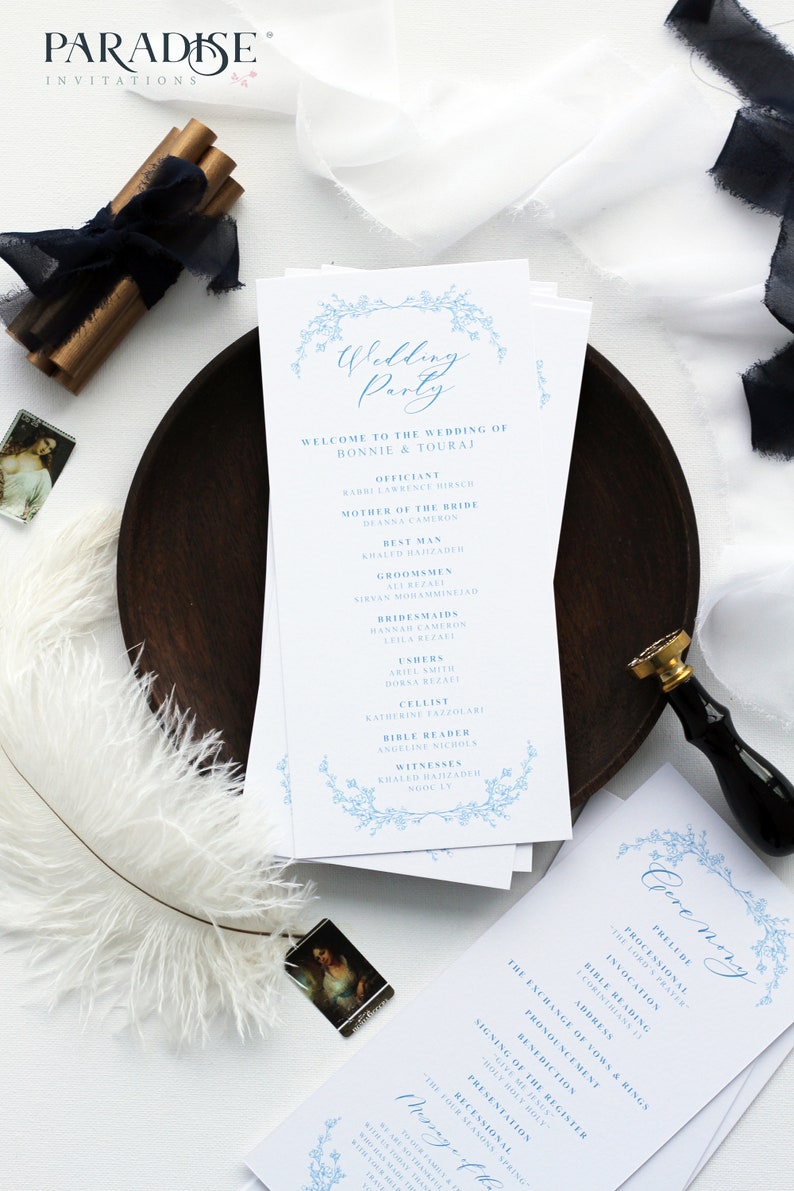 PARADISE
INVITATIONS
Wedding
Party
WELCOME TO THE WEDDING OF
BONNIE & TOURAJ
OFFICIANT
RABBI LAWRENCE HIRSCH
MOTHER OF THE BRIDE
DEANNA CAMERON
BEST MAN
KHALED HAJIZADEH
GROOMSMEN
ALI REZAEI
SIRVAN MOHAMMINEJAD
BRIDESMAIDS
HANNAH CAMERON
LEILA REZAEI
USHERS
ARIEL SMITH
DORSA REZAEI
CELLIST
KATHERINE FAZZOLARI
BIBLE READER
ANGELINE NICHOLS
WITNESSES
KHALED HAJIZADEH
NGOC LY
Ceremony
PRELUDE
PROCESSIONAL
"THE LORD'S PRAYER"
INVOCATION
BIBLE READING
1 CORINTHIANS 13
ADDRESS
THE EXCHANGE OF VOWS & RINGS
PRONOUNCEMENT
BENEDICTION
SIGNING OF THE REGISTER
"GIVE ME JESUS"
"HOLY HOLY HOLY"
PRESENTATION
RECESSIONAL
"THE FOUR SEASONS, SPRING"
Message of
TO OUR FAMILY &
WE ARE SO THANKFUL
WITH US TODAY. THANK
WHO HAS MADE
WITH YOUR HELP